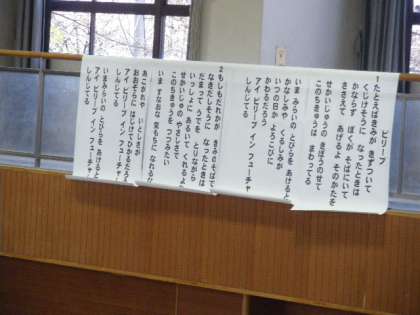 ビリーブ
1たとえばきみが きずついて
くじけそうに なったときは
かならず ぼくが そばにいて
ささえて あげるよ そのかたを
せかいじゅうの きぼうのせて
このちきゅうは まわってる
いま みらいの とびらを あけると
かなしみや くるしみが
いつの日か よろこびに
かわるだろう
アイ ビリーブ イン フューチャー
しんじてる
2もしもだれかが きみのそばで
なきだしそうに なったときは
だまって うでを とりながら
いっしょに あるいて くれるよ
せかいじゅうの やさしさで
このちきゅうを つつみたい
いま すなおな 気もちに なれる
あこがれや いとしさが
おおぞらに はじけてひかるだろう
アイ ビリーブ イン フューチャー
しんじてる
いまみらいの とびらを あけると
アイ ビリーブ イン フューチャー
しんじてる